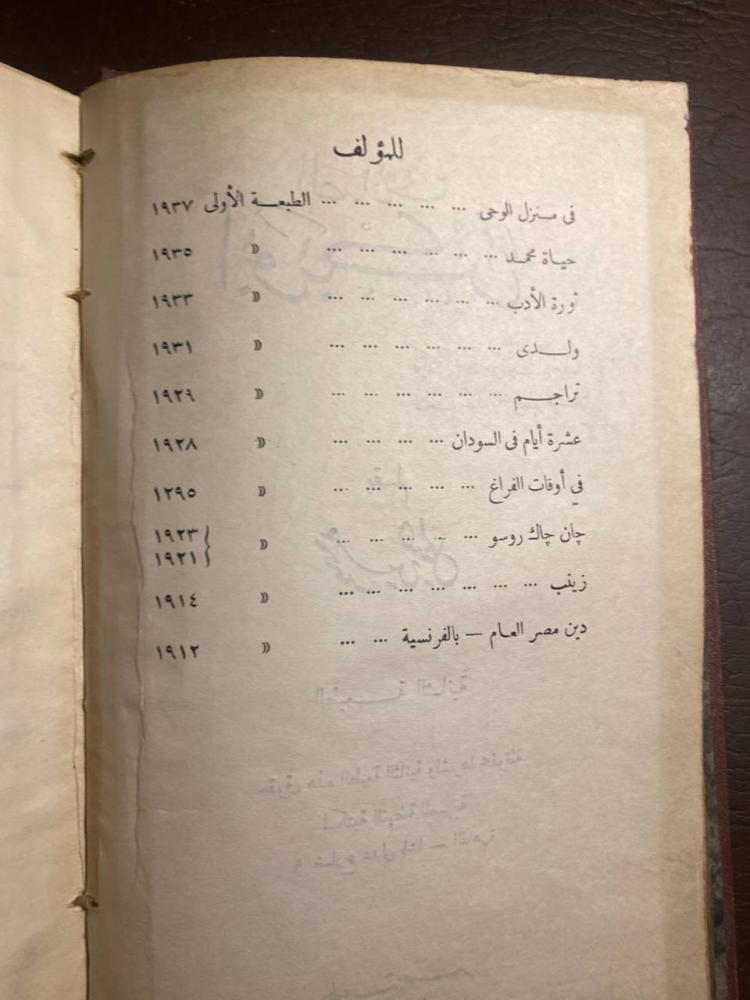 للمؤلف
فى منزل الوحى ... ... ... ... ... الطبعـــة الأولى ١٩٣٧
حيـاة محمـد ... ... ... ... ... ... » ١٩٣٥
ثورة الأدب ... ... ... ... ... ... » ١٩٣٣
ولـــدى ... ... ... ... ... ... » ١٩٣١
تراجـــم ... ... ... ... ... ... » ١٩٢٩
عشرة أيام فى السودان ... ... ... ... » ١٩٢٨
فى أوقات الفراغ ... ... ... ... ... » ١٢٩٥
چان چاك روسو ... ... ... ... ... » { ١٩٢٣
١٩٢١
زينب ... ... ... ... ... ... ... » ١٩١٤
دين مصر العـام — بالفرنسية ... ... » ١٩١٢
الطبعـــة الثـانية